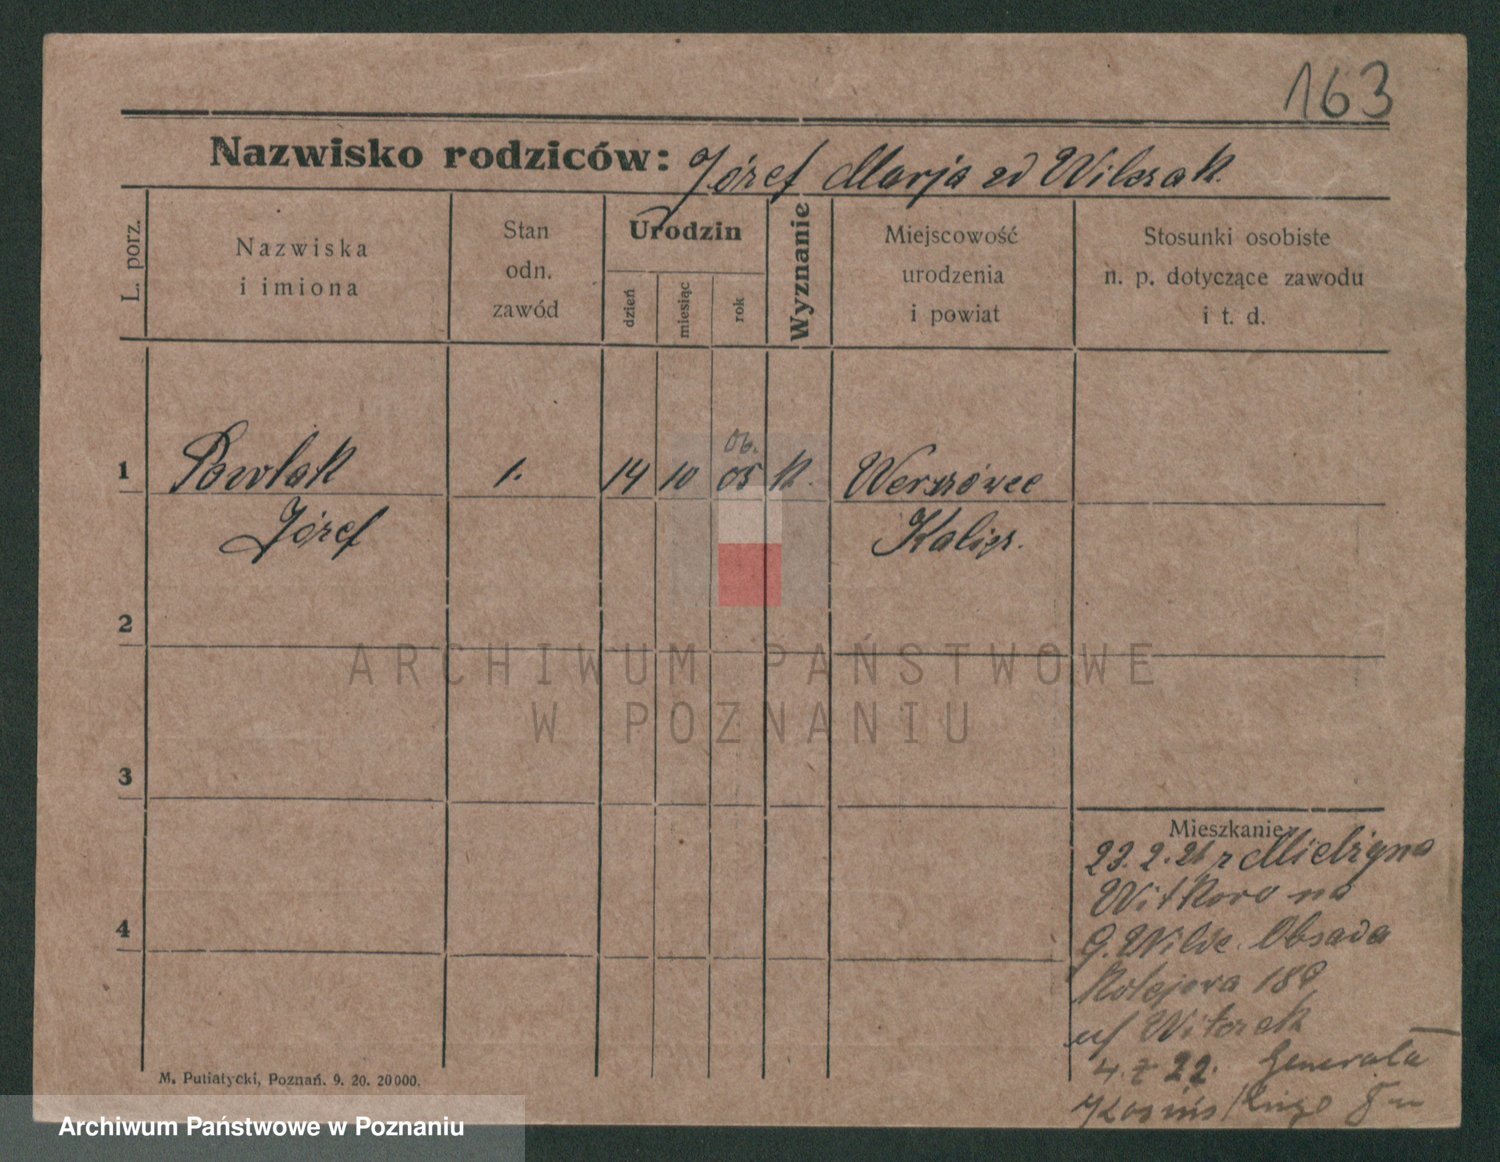 163
Nazwisko rodziców: Józef Marja zd Wilczak
L. porz.
Nazwiska
i imiona
Stan
odn.
zawód
Urodzin
dzień
miesiąc
rok
Wyznanie
Miejscowość
urodzenia
i powiat
Stosunki osobiste
n. p. dotyczące zawodu
i t. d.
06.
1 Pawlak 1. 14 10 05 k.
Józef Kalisz.
2
ARCHIWUM PAŃSTWOWE
W POZNANIU
3
Mieszkanie
23.2.21 z Mielżyna
Witkowo na
G. Wilde. Obsada
Kolejowa
Witorek
4. 22. Generała
4
M. Putiatycki, Poznań. 9. 20. 20000.
Archiwum Państwowe w Poznaniu